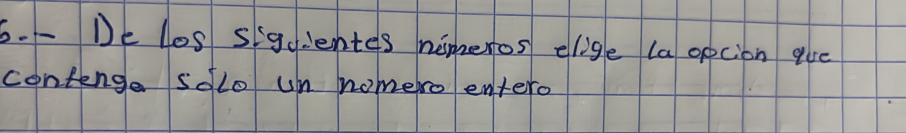 6.- De los siguientes números elige la opcion que
contenga sólo un numero entero